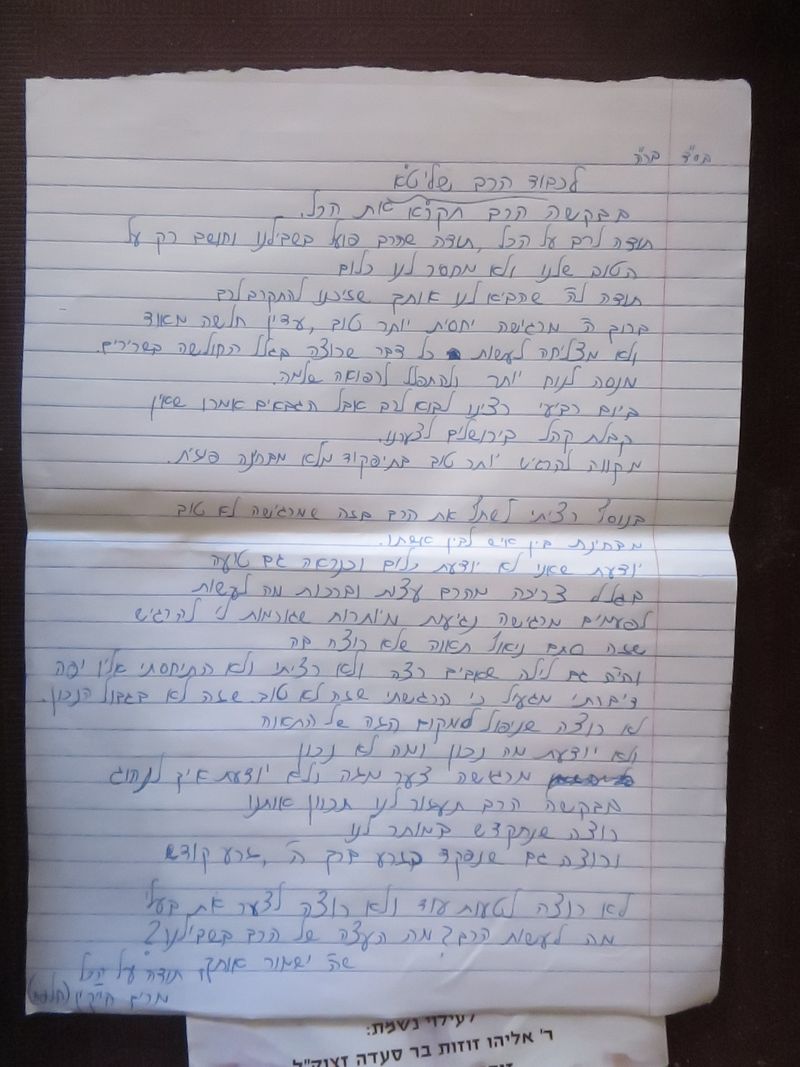 בס"ד ברה
לכבוד הרב שליט"א
בבקשה הרב תקרא את הכל.
תודה לרב על הכל, תודה שהרב פועל בשבילנו וחושב רק על
הטוב שלנו ולא מחסר לנו כלום
תודה לה' שהביא לנו אותך שזיכנו להתקרב לרב
ברוך ה' מרגישה יחסית יותר טוב, עדין חלשה מאוד
ולא מצליחה לעשות כל דבר שרוצה בגלל החולשה בשרירים.
מנסה לנוח יותר ולהתפלל לרפואה שלמה.
ביום רביעי רצינו לבוא לרב אבל הגבאים אמרו שאין
קבלת קהל בירושלים לצערנו.
מקווה להרגיש יותר טוב בתיפקוד מלא מבחינה פיזית.
בנוסף רציתי לשתף את הרב בזה שמרגישה לא טוב
מבחינת בין איש לבין אשתו.
יודעת שאני לא יודעת כלום וכנראה גם טועה
בגלל צריכה מהרב עצות וברכות מה לעשות
לפעמים מרגישה נגיעות מיותרות שגורמות לי להרגיש
שזה סתם ניאוף תאוה שלא רוצה בה
והיה גם לילה שאבים רצה ולא רציתי ולא התיחסתי אליו יפה
דיברתי מגעיל כי הרגשתי שזה לא טוב. שזה לא בגבול הנכון.
לא רוצה שניפול למקום הזה של התאוה
ולא יודעת מה נכון ומה לא נכון
מרגישה צער מזה ולא יודעת איך לנהוג
בבקשה הרב תעזור לנו תכוון אותנו
רוצה שנתקדש במותר לנו
ורוצה גם שנפקד בזרע ברך ה', זרע קודש
לא רוצה לטעות עוד ולא רוצה לצער את בעלי
מה לעשות הרב? מה העצה של הרב בשבילנו?
שה' ישמור אותך, תודה על הכל
מרים
לעילוי נשמת:
ר' אליהו זוזות בר סעדה זצוק"ל